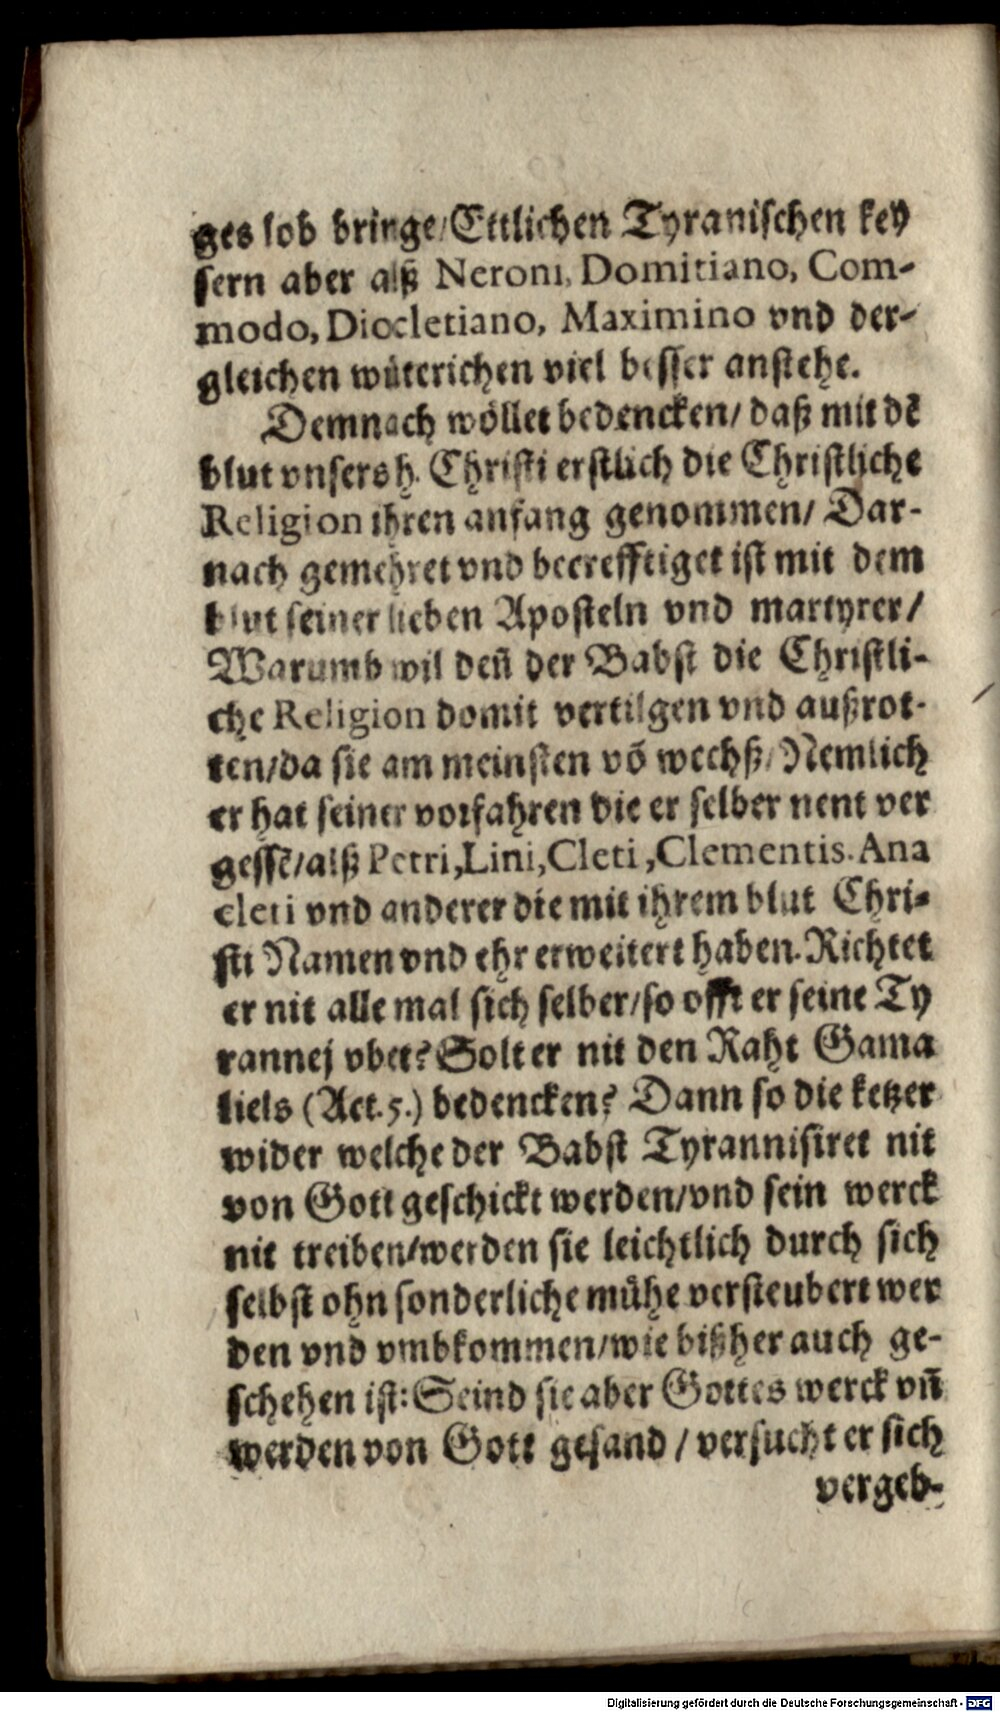 ges lob bringe/Ettlichen Tyranischen key
sern aber alß Neroni, Domitiano, Com-
modo, Diocletiano, Maximino vnd der-
gleichen wüterichen viel besser anstehe.
Demnach wöllet bedencken/ daß mit dē
blut vnsers h. Christi erstlich die Christliche
Religion ihren anfang genommen/ Dar-
nach gemehret vnd becrefftiget ist mit dem
blut seiner lieben Aposteln vnd martyrer/
Warumb wil deñ der Babst die Christli-
che Religion domit vertilgen vnd außrot-
ten/da sie am meinsten võ wechß/Nemlich
er hat seiner vorfahren die er selber nent ver
gessē/alß Petri, Lini, Cleti, Clementis. Ana
cleti vnd anderer die mit ihrem blut Chri-
sti Namen vnd ehr erweitert haben. Richtet
er nit alle mal sich selber/so offt er seine Ty
rannej vbet? Solt er nit den Raht Gama
liels (Act. 5.) bedencken? Dann so die ketzer
wider welche der Babst Tyrannisiret nit
von Gott geschickt werden/vnd sein werck
nit treiben/werden sie leichtlich durch sich
selbst ohn sonderliche mühe versteubert wer
den vnd vmbkommen/wie bißher auch ge-
schehen ist: Seind sie aber Gottes werck vñ
werden von Gott gesand / versucht er sich
vergeb-
Digitalisierung gefördert durch die Deutsche Forschungsgemeinschaft - DFG